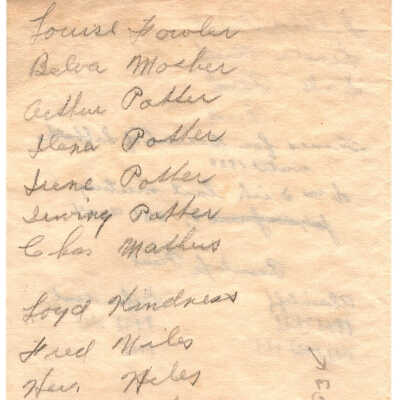 Louise Fowler
Belva Mosher
Arthur Potter
Ilena Potter
Irene Potter
Irving Potter
Chas Mathus
Loyd Kindness
Fred Niles
Niles